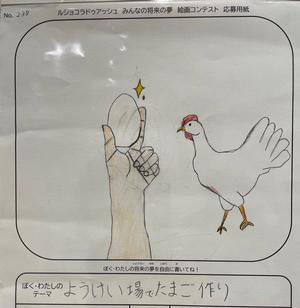 ルショコラドゥアッシュ みんなの将来の夢 絵画コンテスト 応募用紙
No. 238
ぼく・わたしの将来の夢を自由に書いてね!
ぼく・わたしの
テーマ
ようけい場でたまご作り